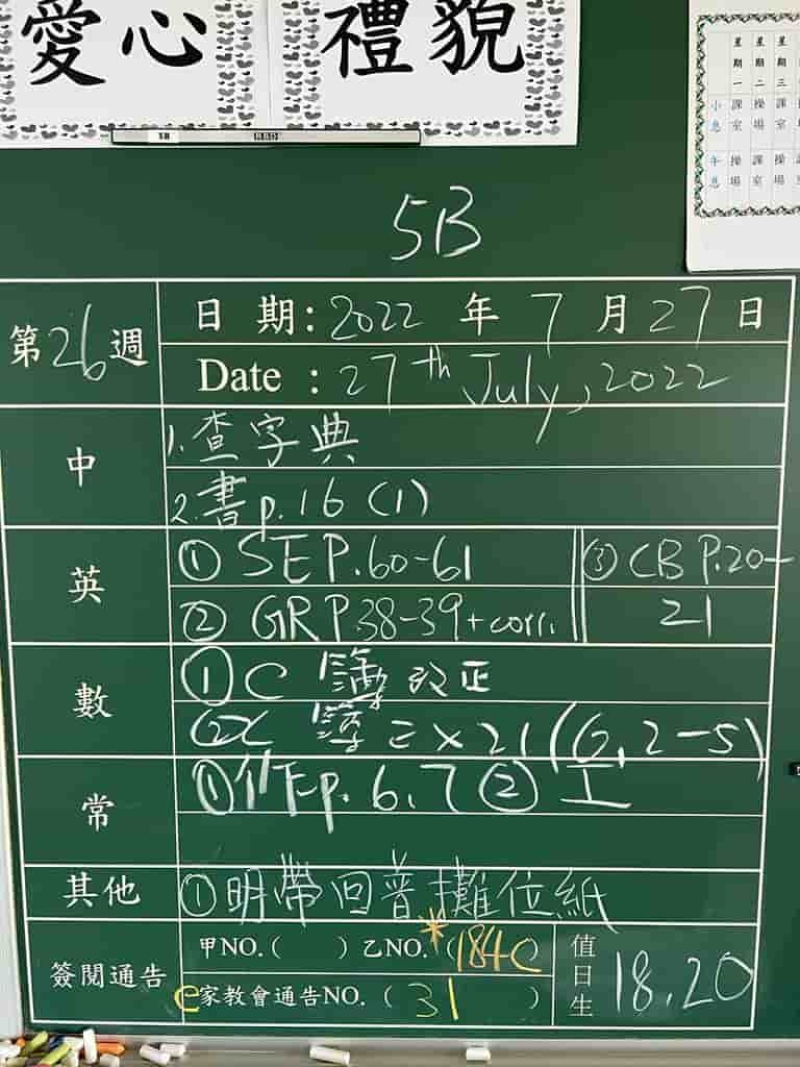 愛心 禮貌
星期一 星期二 星期三
小息 課室 操場 課室
午息 操場 課室 操場
5B
第26週
日期:2022年7月27日
Date : 27th July, 2022
中
1.查字典
2.書p.16 (1)
英
① SE P.60-61
② GR P.38-39+corr.
③ CB P.20-21
數
① C 簿 改正
簿 Ex 21 (6, 2-5)
常
①作p. 6, 7 ② 工
其他
①明帶回普攤位紙
簽閱通告
甲NO.( ) 乙NO.*(184C
e家教會通告NO. ( 31 )
值日生
18, 20